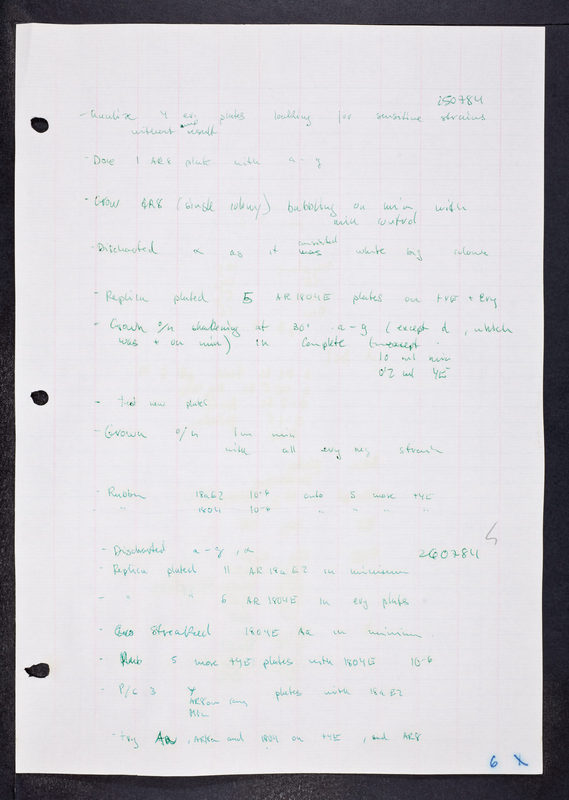 250784
- 4 ery plates looking for sensitive strains
without any result
- Done 1 AR8 plate with a-g
- Grow AR8 (single colony) bubbling on min with
min control
- Discharted α as it was consisted white big
- Replica plated 5 AR1804E plates on +YE + Ery
- Grown o/n shakening at 30° a-g (except d, which
was + on min) in complete (
10 ml min
0'2 ml YE
- new plates
- Grown o/n 1 ml min
with all ery neg strain
- 18aE2 10-8 onto 5 more +YE
" 1804 10-8 " " " "
- Discharted a-g, α 260784
- Replica plated 11 AR18aE2 in minimum
- " " 6 AR1804E in ery plates
- Streaked 1804E Aa in minimum
- 5 more +YE plates with 1804E 10-6
- P/C 3 Y plates with 18aE2
AR8
Min
- try Aa, and 1804 on +YE, and AR8
6 X